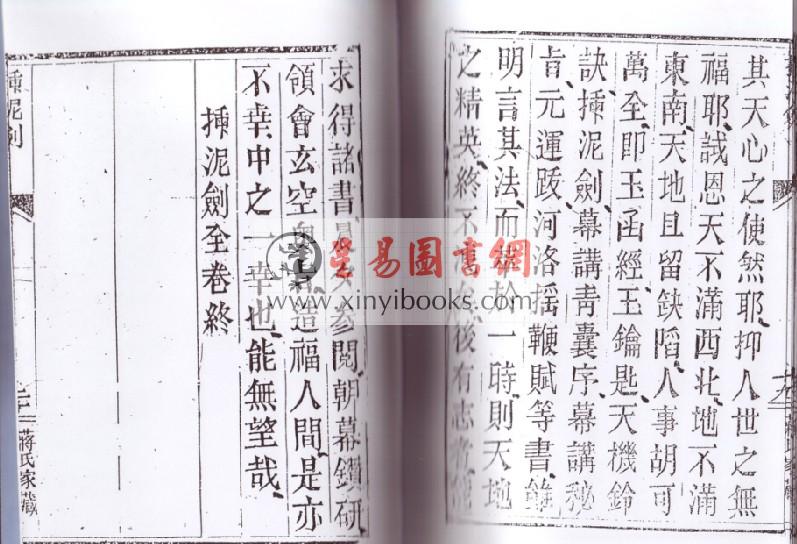 其天心之使然耶、抑人世之無
福耶、誠恩天不滿西北、地不滿
東南、天地且留缺陷、人事胡可
萬全、即玉函經、玉鑰匙、天機鈐
訣、揷泥劍、幕講靑囊序、幕講秘
旨、元運跋、河洛揺鞭賦等書、雖
明言其法、而 於一時、則天地
之精英、終不 後有志者、能
求得諸書、 參閱、朝幕鑽研、
領會玄空 造福人間、是亦
不幸中之一幸也、能無望哉、
揷泥劍全卷終
揷泥劍
蔣氏家藏
蔣氏家藏
星易圖書網
www.xinyibooks.com